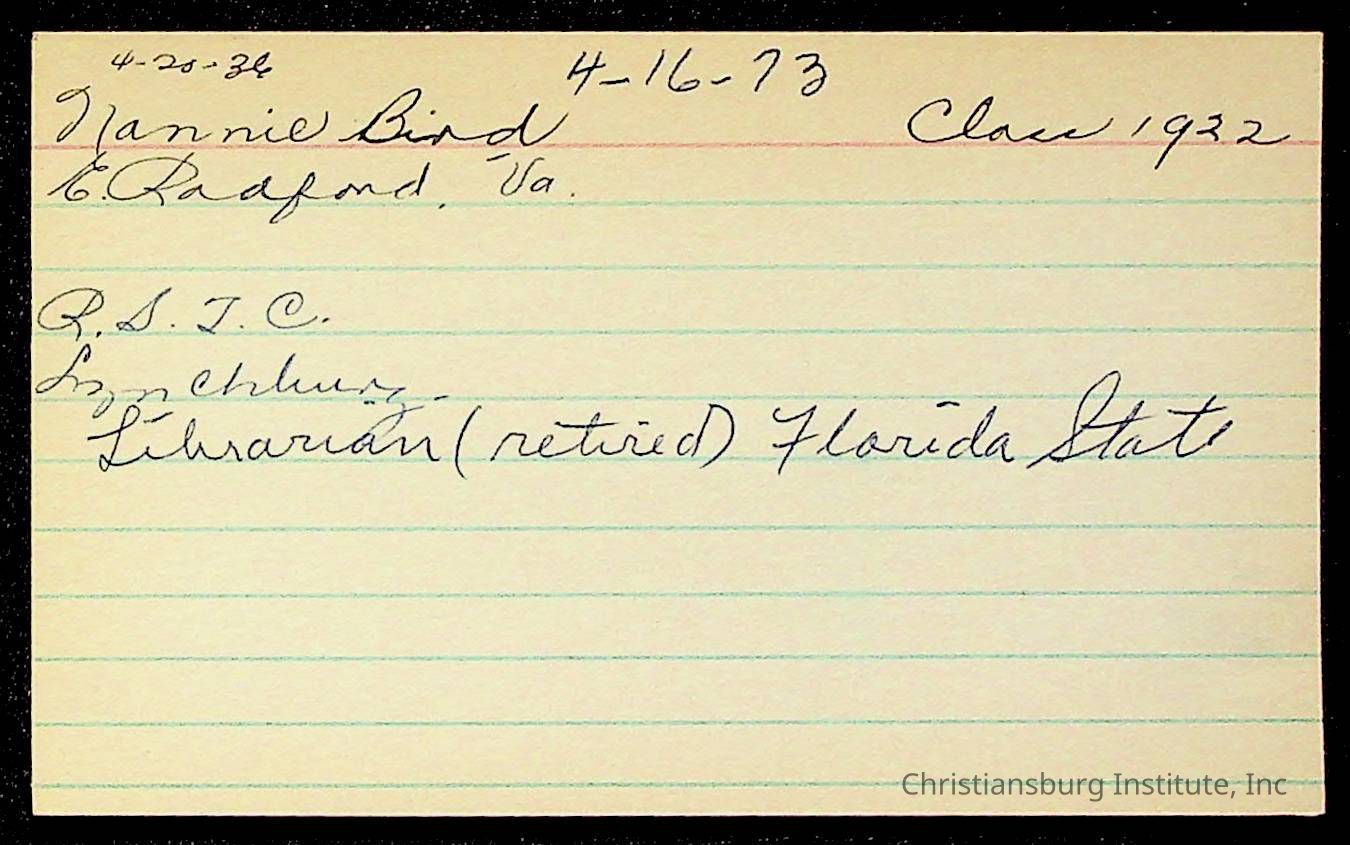 4-20-36
4-16-73
Nannie Bird
Class 1922
E. Radford, Va.
R. S. T. C.
Lynchburg-
Librarian (retired) Florida State
Christiansburg Institute, Inc